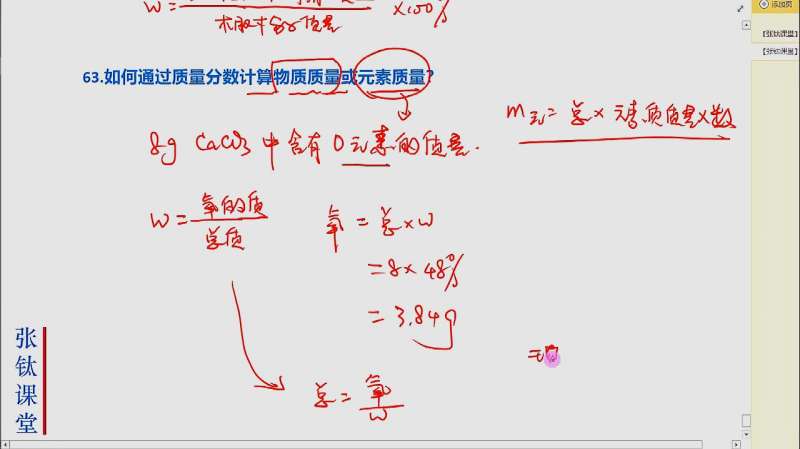 w=
×100%
63.如何通过质量分数计算物质质量或元素质量?
m元=总×元素质量分数
8g CaCO3 中含有O元素的质量.
w=氧的质/总质
氧=总×w
=8×48%
=3.84g
总=氧/w
张钛课堂
添加页
【张钛课堂】
【张钛课堂】